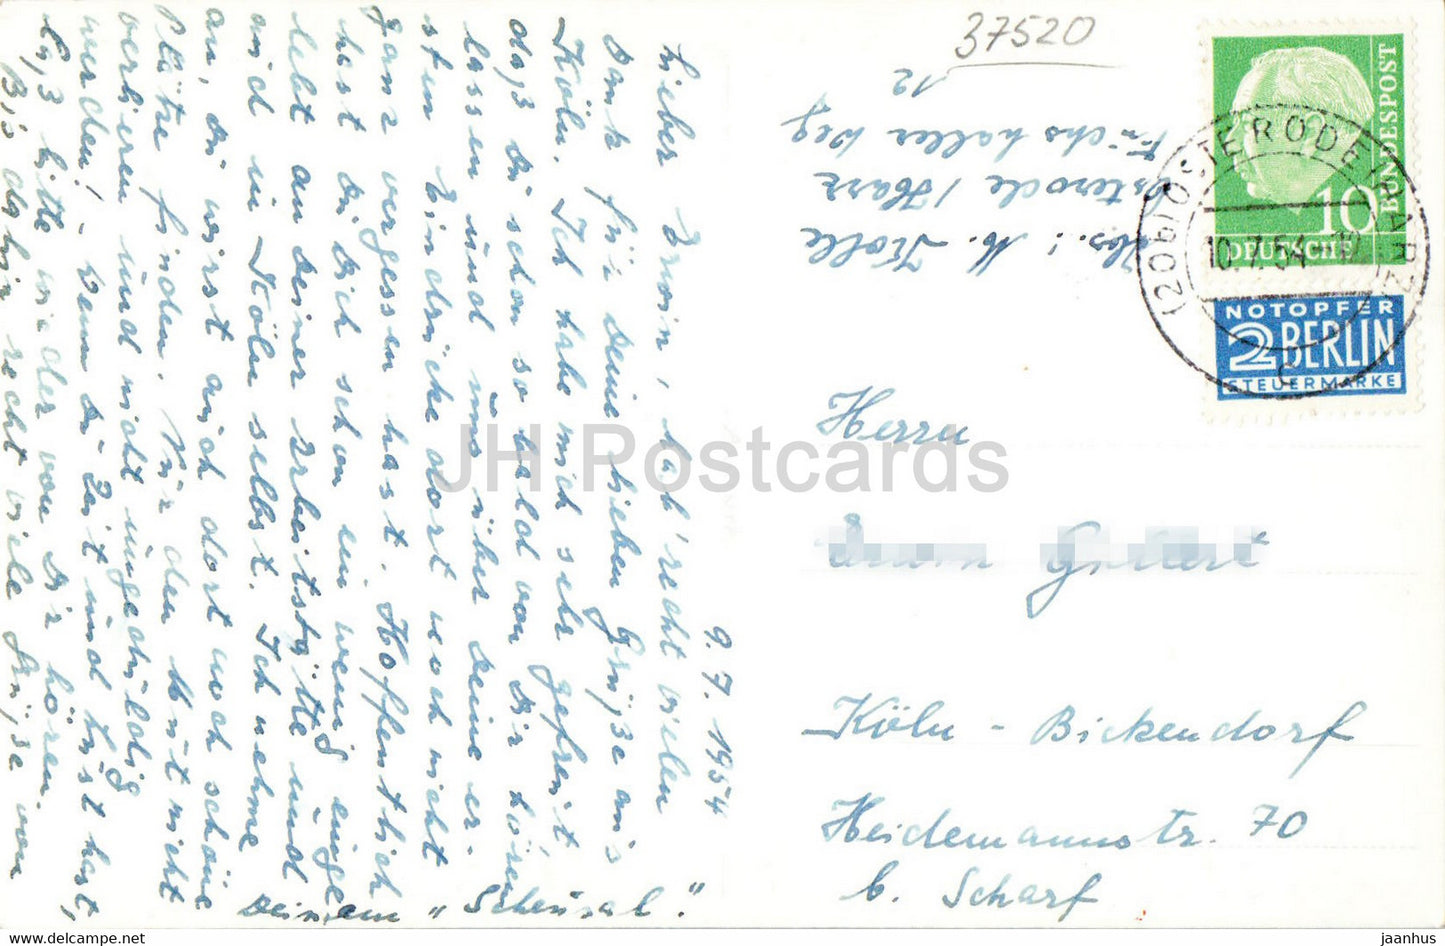 37520
BUNDESPOST
10
DEUTSCHE
(20b) OSTERODE (HARZ)
10.7.54
c
NOTOPFER
2 BERLIN
STEUERMARKE
Abs.: M. Kolle
Osterode / Harz
Fuchshaller Weg
12
Herrn
Köln - Bickendorf
Heidemannstr. 70
b. Scharf
9. 7. 1954
Lieber Erwin, hab' recht vielen
Dank für Deine lieben Grüße aus
Köln. Ich habe mich sehr gefreut,
daß Du schon so bald von Dir hören
lassen und uns über Deine er-
sten Eindrücke dort noch nicht
ganz vergessen hast. Hoffentlich
hast Du Dich schon ein wenig einge-
lebt an Deiner Arbeitsstätte und
auch in Köln selbst. Ich nehme
an, Du wirst auch dort noch schöne
Plätze finden. Nur den Mut nicht
verlieren und nicht ungeduldig
werden! - Wenn Du Zeit und Lust hast,
laß bitte wieder von Dir hören.
Bis dahin recht viele Grüße von
Deinem "Scheusal".
JH Postcards
hipstamp-market.com
jaanhus